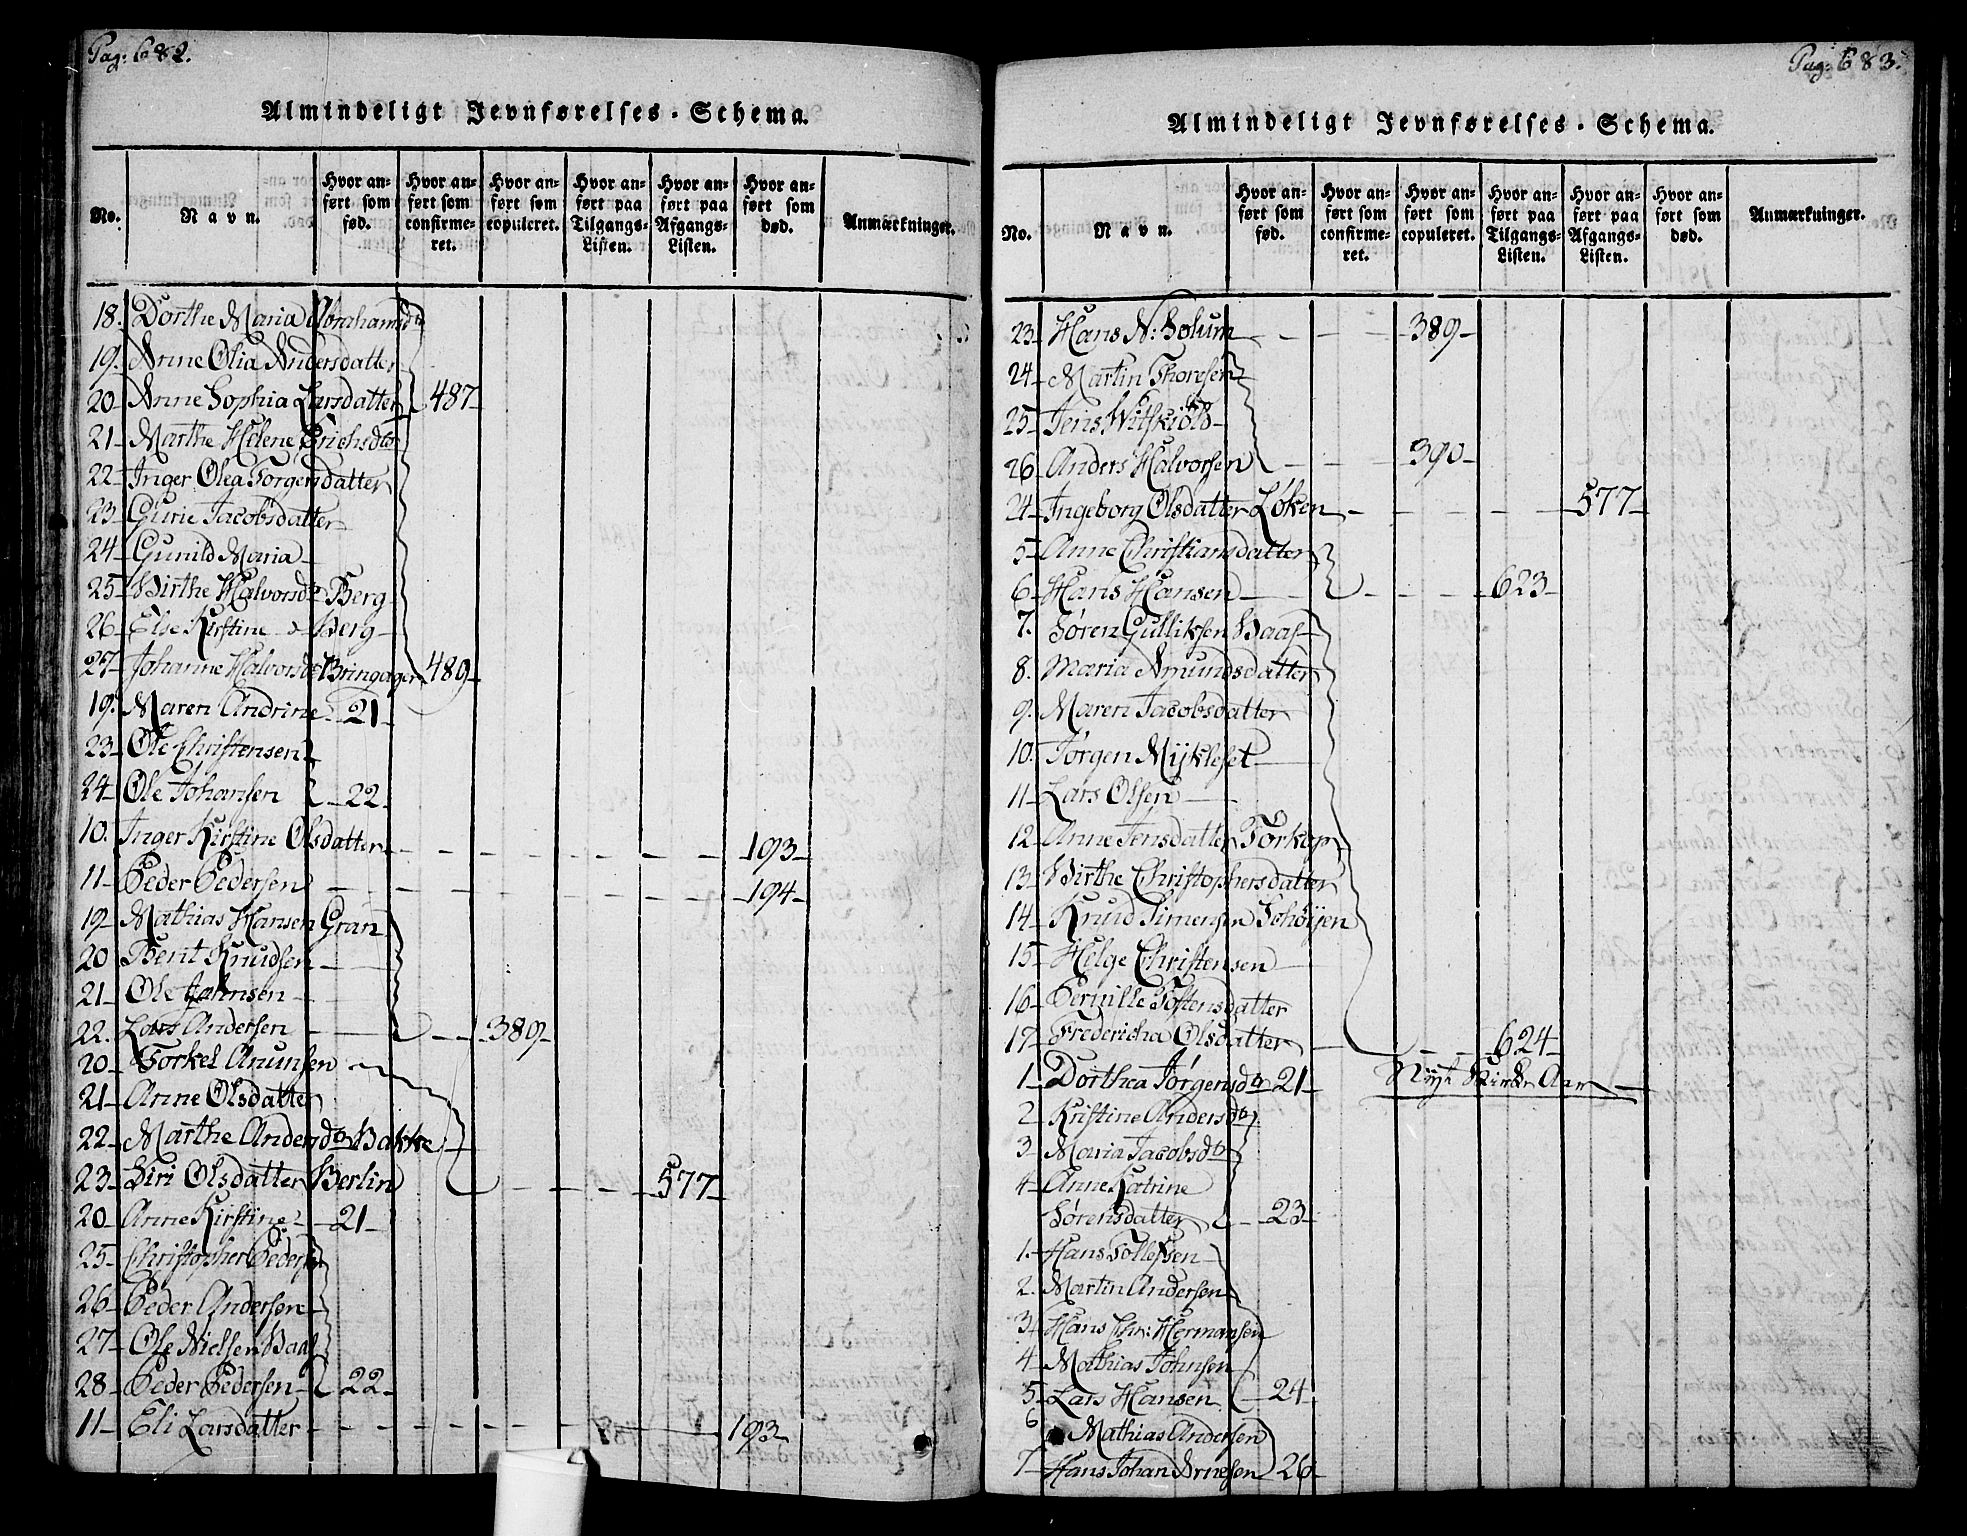 Pag: 682.
Almindeligt Jevnførelses-Schema.
No. Navn. Hvor anført som fød. Hvor anført som confirmeret. Hvor anført som copuleret. Hvor anført paa Tilgangs-Listen. Hvor anført paa Afgangs-Listen. Hvor anført som død. Anmærkninger.
18. Dorthe Maria Abrahamsdtr
19. Anne Olia Andersdatter
20 Anne Sophia Larsdatter 487
21 Marthe Helene Erichsdtr
22 Inger Olea Torgersdatter
23 Gurie Jacobsdatter
24 Gunild Maria
25 Birthe Halvorsdr Berg
26 Else Kirstine Berg
27 Johanne Halvorsdr Bringager 489
19. Maren Andrine 21
23 Ole Christensen
24 Ole Johansen 22
10. Inger Kirstine Olsdatter 193
11 Peder Pedersen 194
19 Mathias Hansen Gran
20 Berit Knudsen
21 Ole Johnsen
22. Lars Andersen 389
20 Torkel Anunsen
21 Anne Olsdatter
22 Marthe Andersdtr Bakke
23 Siri Olsdatter Berlin 577
20 Anne Kirstine 21
25 Christopher Peders
26 Peder Andersen
27 Ole Nielsen Haas
28 Peder Pedersen 22
11 Eli Larsdatter 193
Pag: 683.
Almindeligt Jevnførelses-Schema.
No. Navn. Hvor anført som fød. Hvor anført som confirmeret. Hvor anført som copuleret. Hvor anført paa Tilgangs-Listen. Hvor anført paa Afgangs-Listen. Hvor anført som død. Anmærkninger.
23 Hans N: Solum 389
24 Martin Thoresen
25 Jens
26 Anders Halvorsen 390
24 Ingeborg Olsdatter Löken 577
5 Anne Christiansdatter
6 Hans Hansen 623
7. Søren Gulliksen Haas
8. Maria Amundsdatter
9. Maren Jacobsdatter
10. Jørgen Mykleset
11 Lars Olsen
12 Anne Jensdatter Torkop
13 Birthe Christophersdatter
14 Knud Simensen
15 Helge Christensen
16 Pernille Tostensdatter
17 Fredericha Olsdatter 624
1 Dorthea Jørgensdtr 21 Nyt Kirke Aar
2 Kristine Andersdtr
3 Maria Jacobsdtr
4 Anne Katrine
Sørensdatter 23
1. Hans Tollefsen
2. Martin Andersen
3 Hans Chr: Hermansen
4 Mathias Johnsen
5 Lars Hansen 24
6 Mathias Andersen
7 Hans Johan Arnesen 26